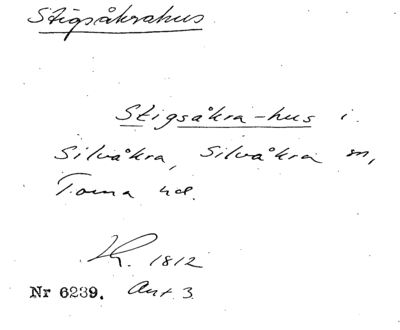 Stigsåkrahus.
Stigsåkra-hus i
Silvåkra, Silvåkra sn,
Torna hd.
1812
Nr 6239. Ant. 3.